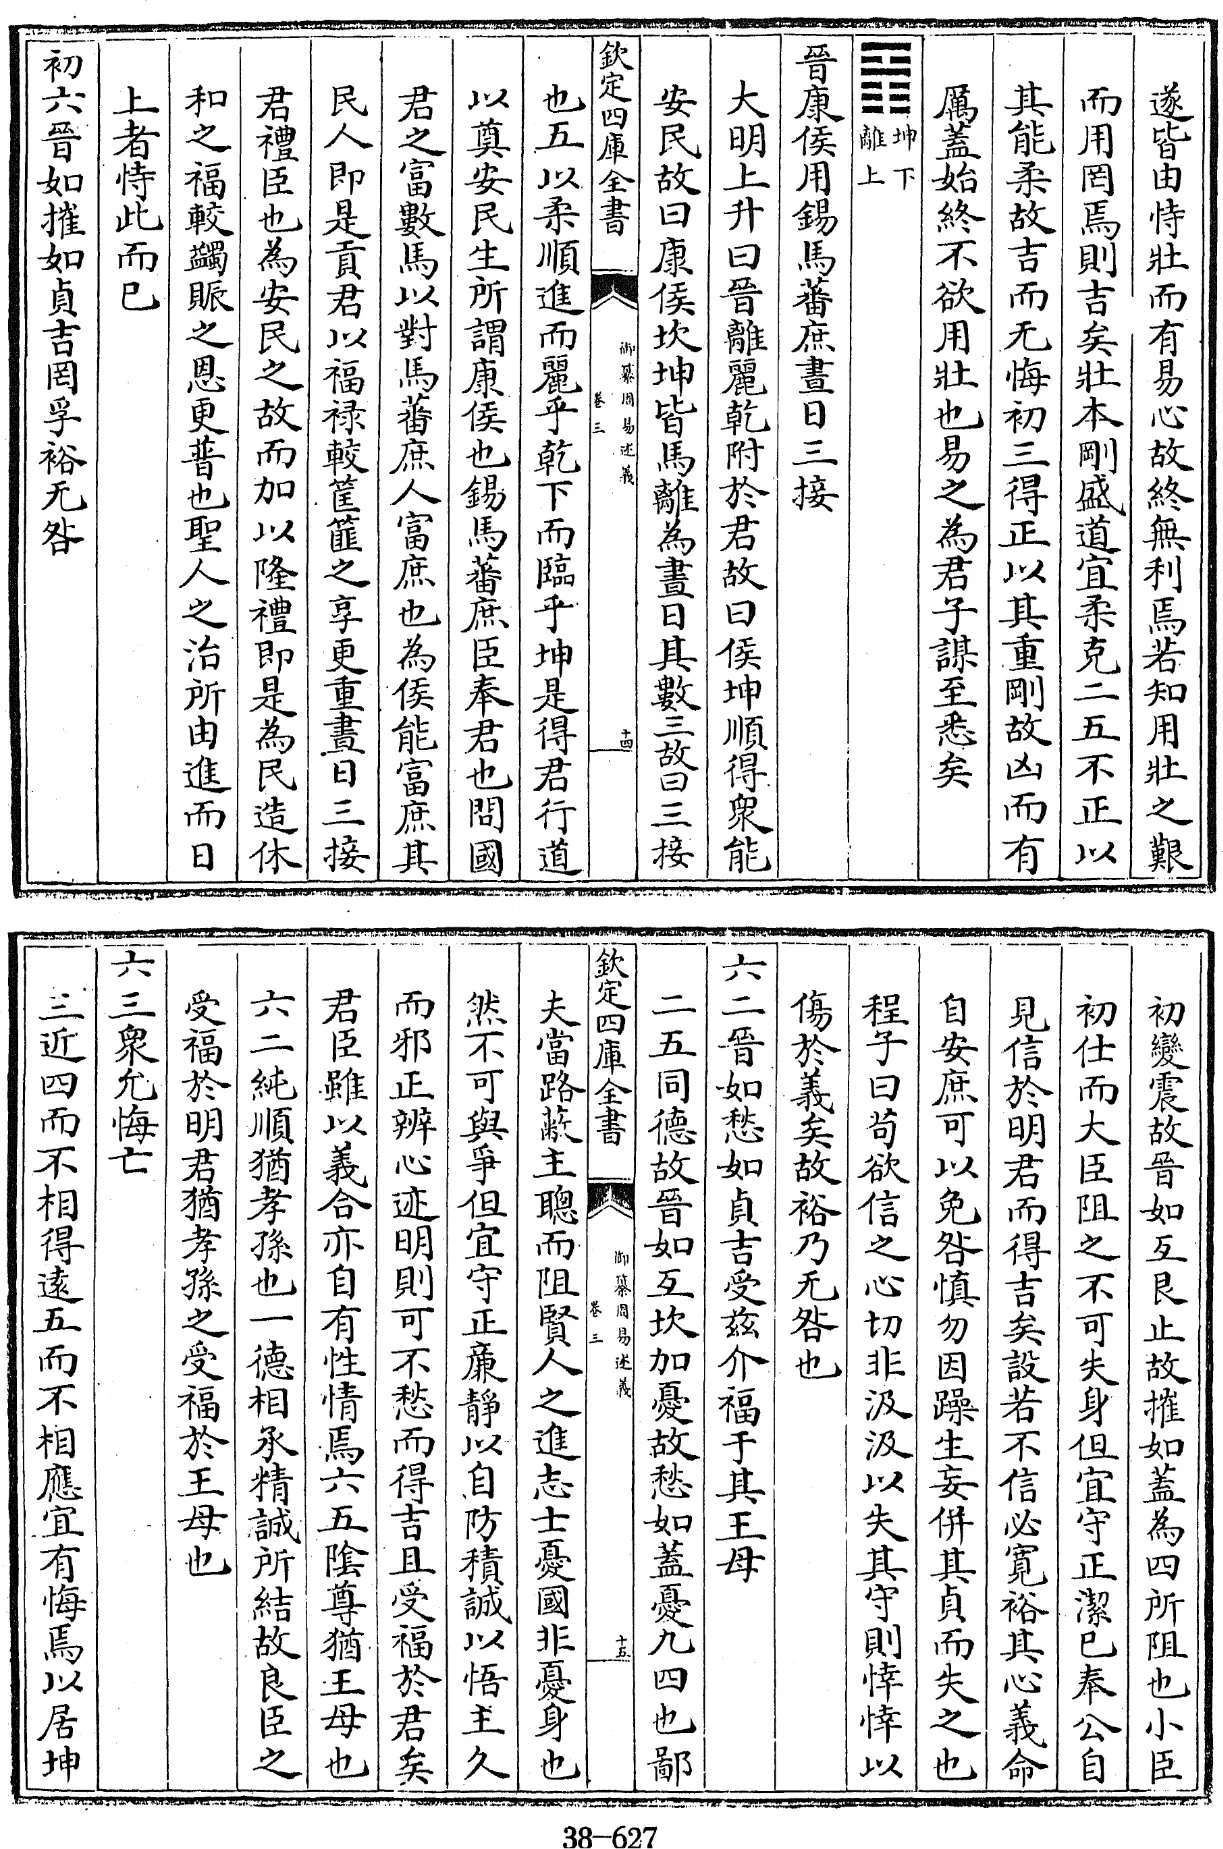 遂皆由恃壯而有易心故終無利焉若知用壯之艱
而用罔焉則吉矣壯本剛盛道宜柔克二五不正以
其能柔故吉而无悔初三得正以其重剛故凶而有
厲蓋始終不欲用壯也易之為君子謀至悉矣
坤下
離上
晉康侯用錫馬蕃庶晝日三接
大明上升曰晉離麗乾附於君故曰侯坤順得衆能
安民故曰康侯坎坤皆馬離為晝日其數三故曰三接
欽定四庫全書
御纂周易述義
卷三
十四
也五以柔順進而麗乎乾下而臨乎坤是得君行道
以奠安民生所謂康侯也錫馬蕃庶臣奉君也問國
君之富數馬以對馬蕃庶人富庶也為侯能富庶其
民人即是貢君以福祿較筐篚之享更重晝日三接
君禮臣也為安民之故而加以隆禮即是為民造休
和之福較蠲賑之恩更普也聖人之治所由進而日
上者恃此而已
初六晉如摧如貞吉罔孚裕无咎
初變震故晉如互艮止故摧如蓋為四所阻也小臣
初仕而大臣阻之不可失身但宜守正潔已奉公自
見信於明君而得吉矣設若不信必寬裕其心義命
自安庶可以免咎慎勿因躁生妄併其貞而失之也
程子曰苟欲信之心切非汲汲以失其守則悻悻以
傷於義矣故裕乃无咎也
六二晉如愁如貞吉受茲介福于其王母
二五同德故晉如互坎加憂故愁如蓋憂九四也鄙
欽定四庫全書
御纂周易述義
卷三
十五
夫當路蔽主聰而阻賢人之進志士憂國非憂身也
然不可與爭但宜守正廉靜以自防積誠以悟主久
而邪正辨心迹明則可不愁而得吉且受福於君矣
君臣雖以義合亦自有性情焉六五陰尊猶王母也
六二純順猶孝孫也一德相承精誠所結故良臣之
受福於明君猶孝孫之受福於王母也
六三衆允悔亡
三近四而不相得遠五而不相應宜有悔焉以居坤
38-627